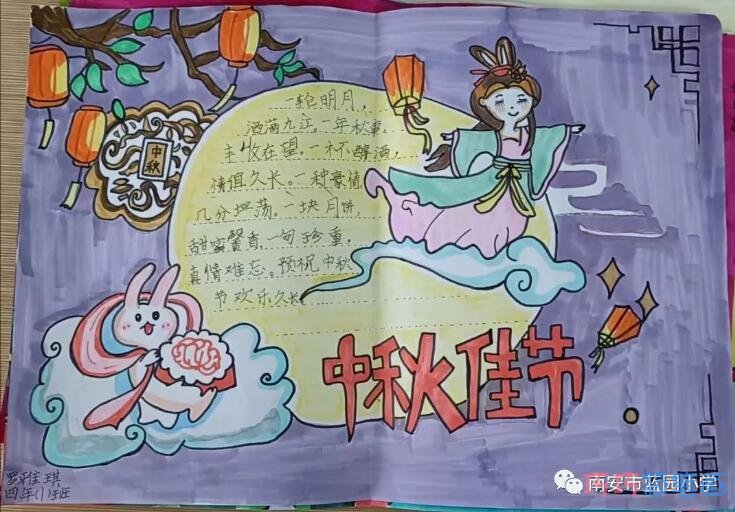 中
秋
一轮明月，
洒满九江。一年秋事，
丰收在望。一杯醇酒，
情谊久长。一种豪情，
几分坦荡。一块月饼，
甜蜜馨香。一句珍重，
真情难忘。预祝中秋
节欢乐久长
中秋佳节
罗雅琪
四年(1)班
南安市蓝园小学